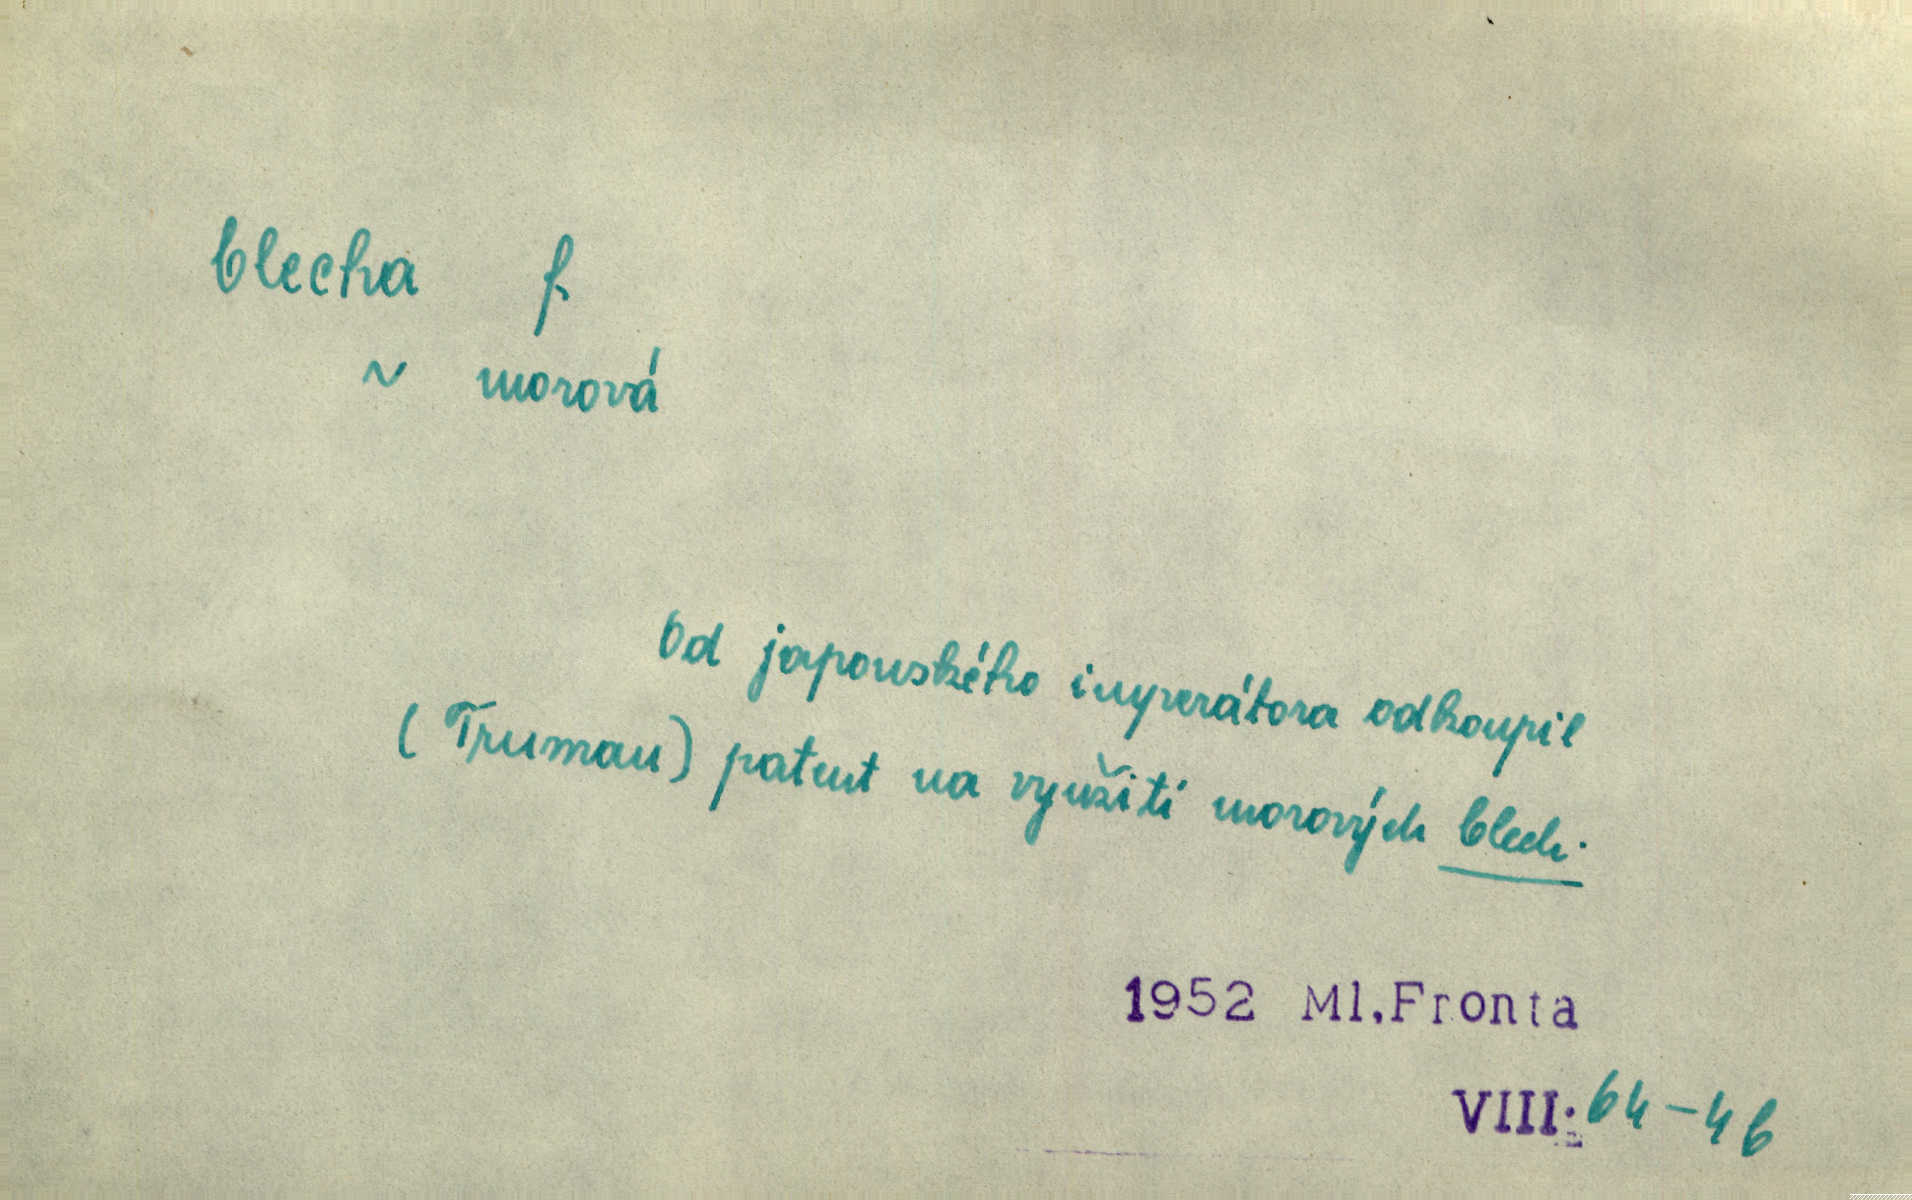 blecha f.
~ morová
Od japonského imperátora odkoupil
(Truman) patent na využití morových blech.
1952 Ml.Fronta
VIII: 64-4b